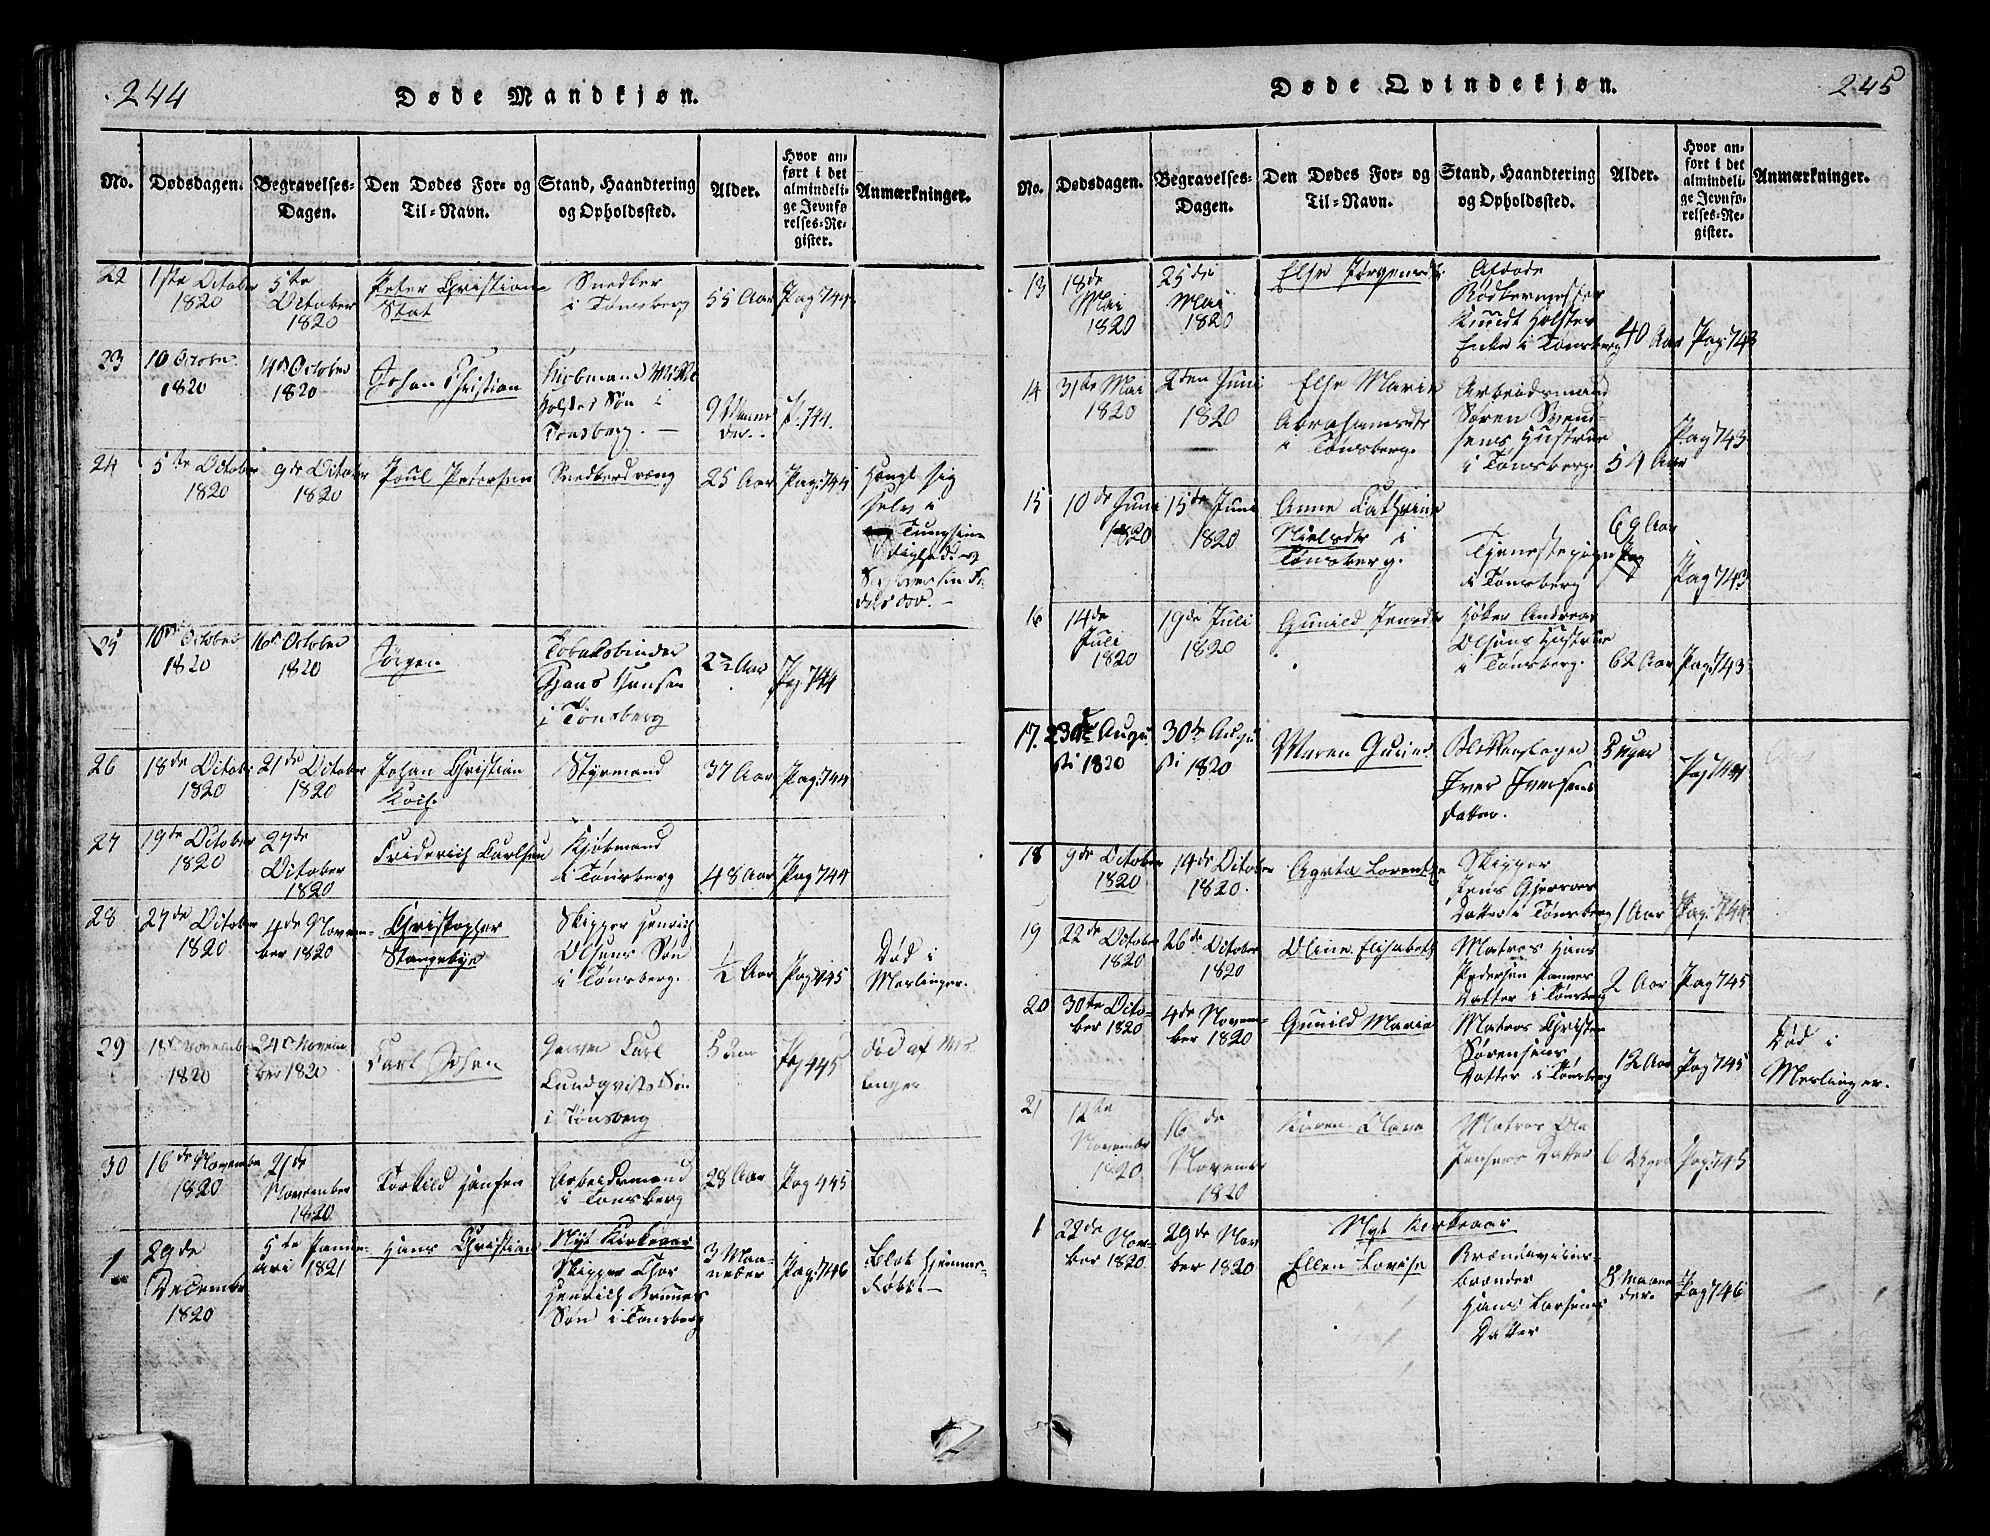 244
Døde Mandkjøn.
No.
Dødsdagen.
Begravelses-
Dagen.
Den Dødes For- og
Til-Navn.
Stand, Haandtering
og Opholdssted.
Alder.
Hvor an-
ført i det
almindeli-
ge Jevnfø-
relses-Re-
gister.
Anmærkninger.
22
1ste October
1820
5te
October
1820
Peter Christian
Stat
Snedker
i Tønsberg
55 Aar
Pag 744
23
10 Octobr
1820
14de October
1820
Johan Christian
Kiøbmand
Holsts Søn i
Tønsberg.
9 Maane
der.
P. 744.
24
5te October
1820
9de October
1820
Poul Petersen
Snedkerdreng
25 Aar
Pag: 744
Hængt sig
selv i
Tungsin-
dighed
25
10de October
1820
16de October
1820
Jørgen
Tobaksbinder
Hans Hansen
i Tønsberg
2½ Aar
Pag 744
26
18de Octobr
1820
21de October
1820
Johan Christian
Koch.
Styrmand
37 Aar
Pag: 744
27
19de October
1820
27de
October
1820
Friderich Carlsen
Kjøbmand
i Tønsberg
48 Aar
Pag 744
28
27de October
1820
4de Novem-
ber 1820
Christopher
Stangebye
Skipper Henrich
Olsens Søn
i Tønsberg.
½ Aar
Pag 745
Død i
Meslinger.
29
18de November
1820
24de Novem
ber 1820
Carl Johan
Carl
Lundqvists Søn
i Tønsberg
Pag 445
død af Mes-
linger
30
16de Novembr
1820
21de
November
1820
Torkild Hansen
Arbeidsmand
i Tønsberg
28 Aar
Pag 445
1
29de
Decembr
1820
5te Janu-
ari 1821
Hans Christian
Nyt Kirkeaar
Skipper Thor
Henrich Bruuns
Søn i Tønsberg
3 Maa-
neder
Pag: 746
Blot hjemme-
døbt.
245
Døde Qvindekjøn.
No.
Dødsdagen.
Begravelses-
Dagen.
Den Dødes For- og
Til-Navn.
Stand, Haandtering
og Opholdssted.
Alder.
Hvor an-
ført i det
almindeli-
ge Jevnfø-
relses-Re-
gister.
Anmærkninger.
13
18de
Mai
1820
25de
Mai
1820
Else Jørgensdtr
Afdøde
Bødkermester
Knudt Holster
Enke i Tønsberg
40 Aar
Pag: 743
14
31te Mai
1820
2den Juni
1820
Else Marie
Abrahamsdtr
i Tønsberg.
Arbeidsmand
Søren Svend-
sens Hustrue
i Tønsberg.
54 Aar
Pag 743
15
10de Juni
1820
15de Juni
1820
Anne Cathrine
Nielsdtr i
Tønsberg.
Tjenestepige
i Tønsberg
69 Aar
Pag 743
16
14de
Juli
1820
19de Juli
1820
Gunild Jensdtr
Høker Andreas
Olsens Hustrue
i Tønsberg.
62 Aar
Pag: 743
17.
23de Augu
sti 1820
30te Augu
sti 1820
Maren Gurine
Blikkenslager
Iver Iversens
Datter.
Uger
Pag: 744
18
9de October
1820
14de October
1820.
Agnta Lorentze
Skipper
Jens
Datter i Tønsberg
1 Aar
Pag: 744
19
22de October
1820
26de October
1820
Oline Elisabeth
Matros Hans
Pedersen
Datter i Tønsberg
2 Aar
Pag 745
20
30te Octo-
ber 1820
4de Novem-
ber 1820
Gunild Marie
Matros Christen
Sørensens
Datter i Tønsberg
12 Aar
Pag 745
Død i
Meslinger.
21
12te
November
1820
16de
November
1820
Karen Olava
Matros Ole
Jensens Datter
6 Uger
Pag: 745
1
22de Nov-
ber 1820
29de Nov
ber 1820
Nyt Kirkeaar
Ellen Lovise
Brændeviins-
brænder
Hans Larsens
Datter
8 Maane
der.
Pag 746